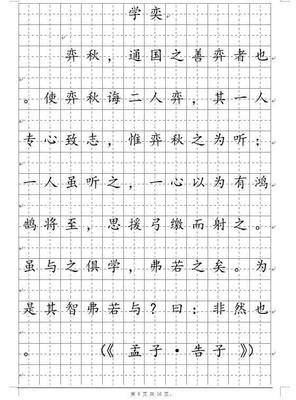 学奕
弈秋，通国之善弈者也
。使弈秋诲二人弈，其一人
专心致志，惟弈秋之为听；
一人虽听之，一心以为有鸿
鹄将至，思援弓缴而射之。
虽与之俱学，弗若之矣。为
是其智弗若与？曰：非然也
。 （《 孟子·告子 》）
第 9 页 共 16 页。